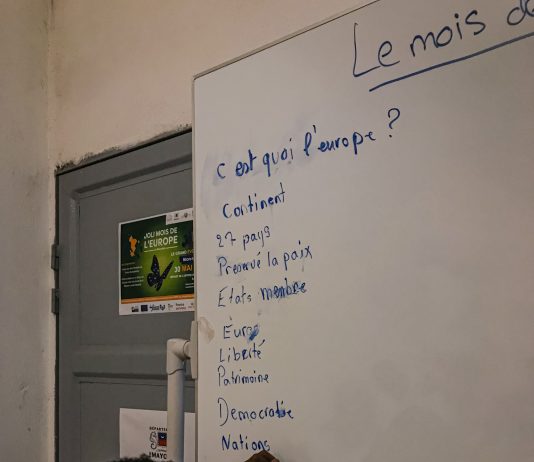 Le mois de
C'est quoi l'europe ?
Continent
27 pays
Preservé la paix
Etats membre
Euro
Liberté
Patrimoine
Democratie
Nations
JOLI MOIS DE
L'EUROPE
LE GRAND
30 MAI
DÉPARTE
MAYO